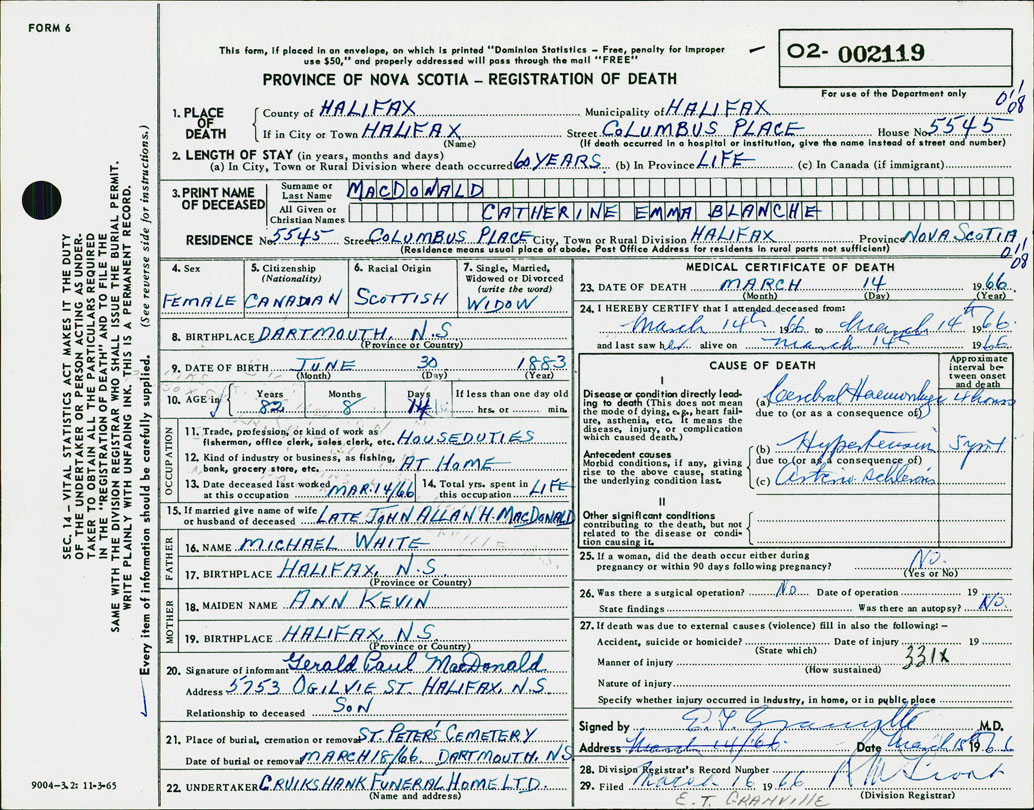 FORM 6
This form, if placed in an envelope, on which is printed "Dominion Statistics – Free, penalty for improper
use $50," and properly addressed will pass through the mail "FREE"
O2- 002119
For use of the Department only
PROVINCE OF NOVA SCOTIA – REGISTRATION OF DEATH
1. PLACE OF DEATH
County of HALIFAX Municipality of HALIFAX
If in City or Town HALIFAX Street COLUMBUS PLACE House No 5545
(Name) (If death occurred in a hospital or institution, give the name instead of street and number)
2. LENGTH OF STAY (in years, months and days)
(a) In City, Town or Rural Division where death occurred 60 YEARS (b) In Province LIFE (c) In Canada (if immigrant)
3. PRINT NAME OF DECEASED
Surname or Last Name MACDONALD
All Given or Christian Names CATHERINE EMMA BLANCHE
RESIDENCE No 5545 Street COLUMBUS PLACE City, Town or Rural Division HALIFAX Province NOVA SCOTIA
(Residence means usual place of abode. Post Office Address for residents in rural parts not sufficient)
SEC. 14 – VITAL STATISTICS ACT MAKES IT THE DUTY
OF THE UNDERTAKER OR PERSON ACTING AS UNDER-
TAKER TO OBTAIN ALL THE PARTICULARS REQUIRED
IN THE "REGISTRATION OF DEATH" AND TO FILE THE
SAME WITH THE DIVISION REGISTRAR WHO SHALL ISSUE THE BURIAL PERMIT.
WRITE PLAINLY WITH UNFADING INK. THIS IS A PERMANENT RECORD.
Every item of information should be carefully supplied. (See reverse side for instructions.)
4. Sex FEMALE
5. Citizenship (Nationality) CANADIAN
6. Racial Origin SCOTTISH
7. Single, Married, Widowed or Divorced (write the word) WIDOW
8. BIRTHPLACE DARTMOUTH, N.S
(Province or Country)
9. DATE OF BIRTH JUNE 30 1883
(Month) (Day) (Year)
10. AGE in Years 82 Months 8 Days 14 If less than one day old hrs. or min.
OCCUPATION
11. Trade, profession, or kind of work as
fisherman, office clerk, sales clerk, etc. HOUSEDUTIES
12. Kind of industry or business, as fishing,
bank, grocery store, etc. AT HOME
13. Date deceased last worked at this occupation MAR. 14/66 14. Total yrs. spent in this occupation LIFE
15. If married give name of wife
or husband of deceased LATE JOHN ALLAN H. MACDONALD
FATHER
16. NAME MICHAEL WHITE
17. BIRTHPLACE HALIFAX, N.S.
(Province or Country)
MOTHER
18. MAIDEN NAME ANN KEVIN
19. BIRTHPLACE HALIFAX, N.S.
(Province or Country)
20. Signature of informant Gerald Paul MacDonald
Address 5753 OGILVIE ST. HALIFAX, N.S
Relationship to deceased SON
21. Place of burial, cremation or removal ST. PETER'S CEMETERY
Date of burial or removal MARCH 18/66 DARTMOUTH, N.S
22. UNDERTAKER CRUIKSHANK FUNERAL HOME LTD.
(Name and address)
MEDICAL CERTIFICATE OF DEATH
23. DATE OF DEATH MARCH 14 1966
(Month) (Day) (Year)
24. I HEREBY CERTIFY that I attended deceased from:
March 14th 1966 to March 14th 1966
and last saw her alive on March 14th 1966
CAUSE OF DEATH
Approximate interval between onset and death
I
Disease or condition directly lead-
ing to death (This does not mean
the mode of dying, e.g., heart fail-
ure, asthenia, etc. It means the
disease, injury, or complication
which caused death.)
(a) Cerebral Haemorrhage 4 hours
due to (or as a consequence of)
Antecedent causes
Morbid conditions, if any, giving
rise to the above cause, stating
the underlying condition last.
(b) Hypertension
due to (or as a consequence of)
(c)
II
Other significant conditions
contributing to the death, but not
related to the disease or condi-
tion causing it.
25. If a woman, did the death occur either during
pregnancy or within 90 days following pregnancy? No.
(Yes or No)
26. Was there a surgical operation? No Date of operation 19
State findings Was there an autopsy? No.
27. If death was due to external causes (violence) fill in also the following: –
Accident, suicide or homicide? Date of injury 19
(State which)
Manner of injury 331X
(How sustained)
Nature of injury
Specify whether injury occurred in industry, in home, or in public place
Signed by M.D.
Address March 14/66. Date March 15th 1966
28. Division Registrar's Record Number
29. Filed March 16 1966
(Division Registrar)
E. T. GRANVILLE
9004–3.2: 11-3-65